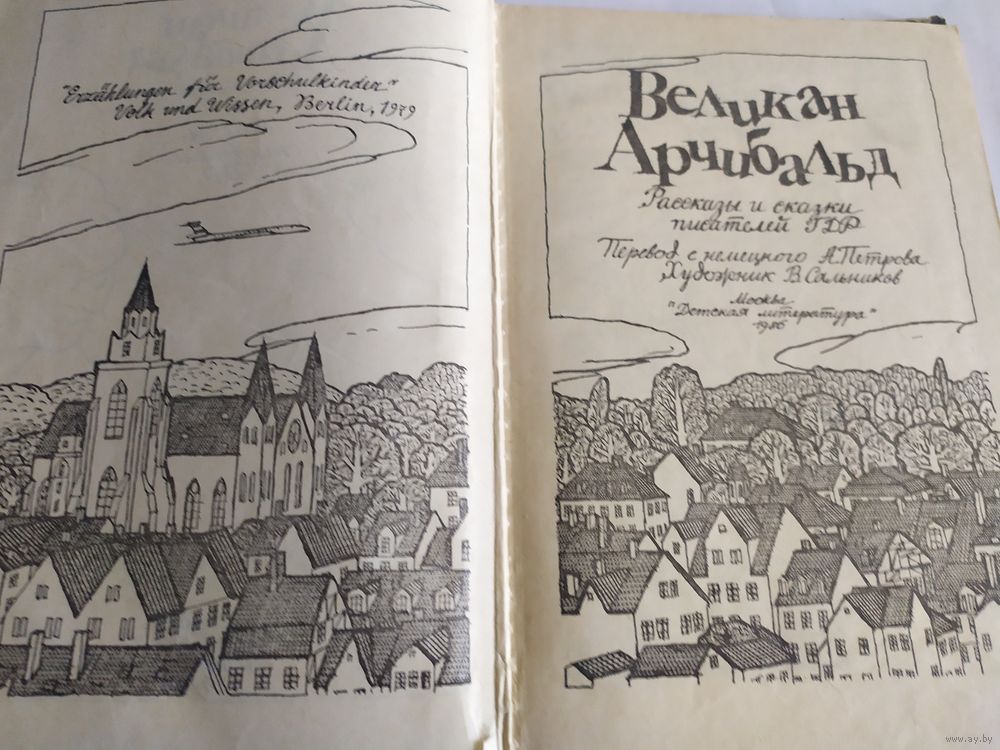 "Erzählungen für Vorschulkinder"
Volk und Wissen, Berlin, 1979
Великан
Арчибальд
Рассказы и сказки
писателей ГДР
Перевод с немецкого А. Петрова
Художник В. Сальников
Москва
"Детская литература"
1986
www.ay.by